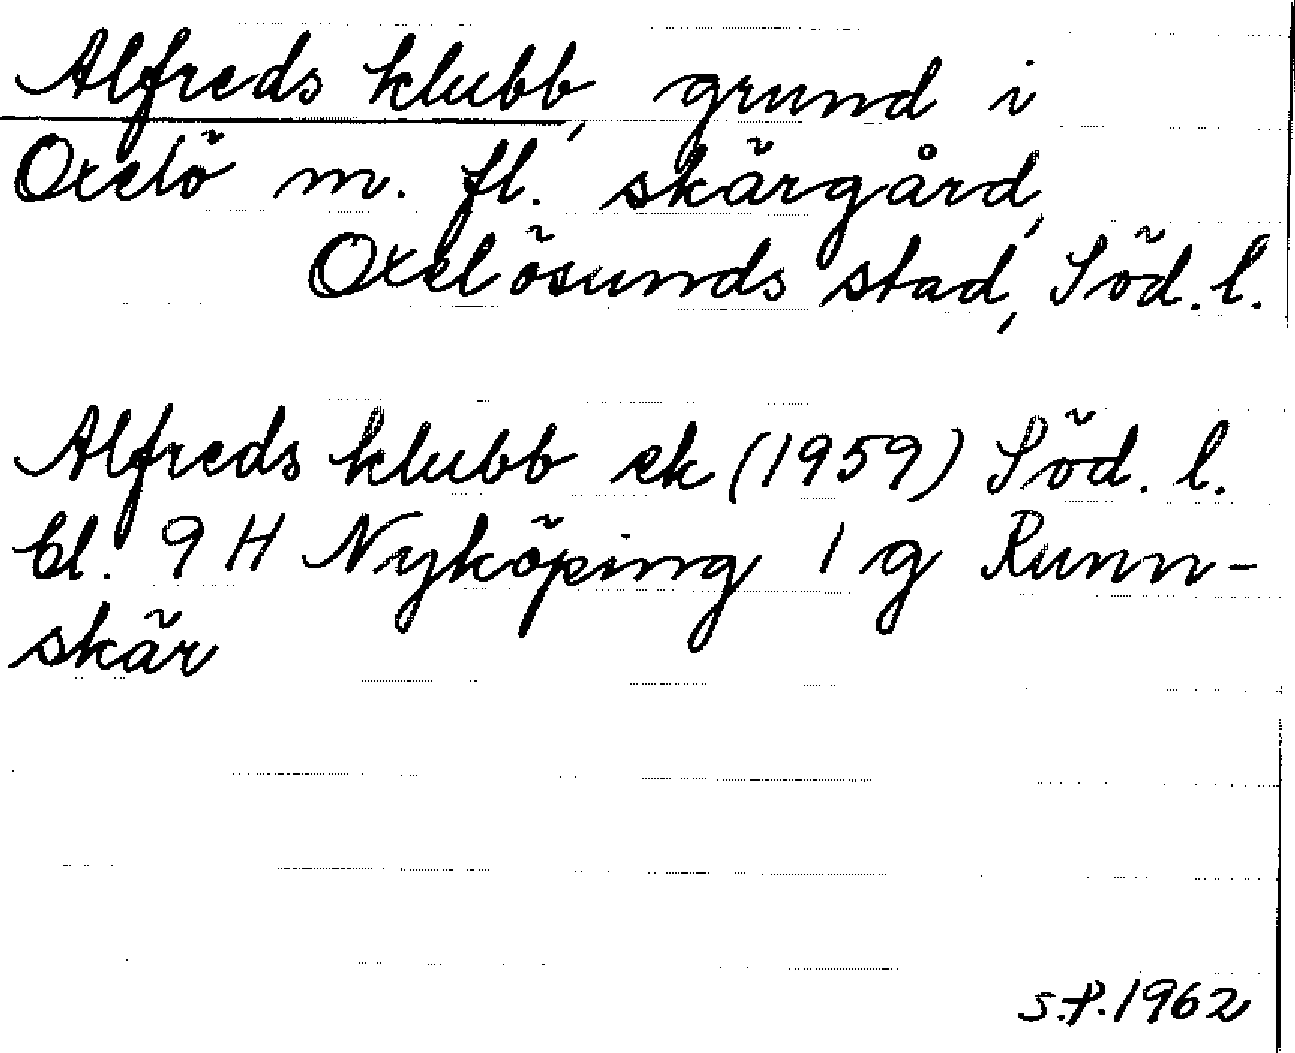 Alfreds klubb, grund i
Oxelö m. fl. skärgård,
Oxelösunds stad, Söd. l.
Alfreds klubb ek (1959) Söd. l.
bl. 9 H Nyköping 1 g Runn-
skär
S.P. 1962